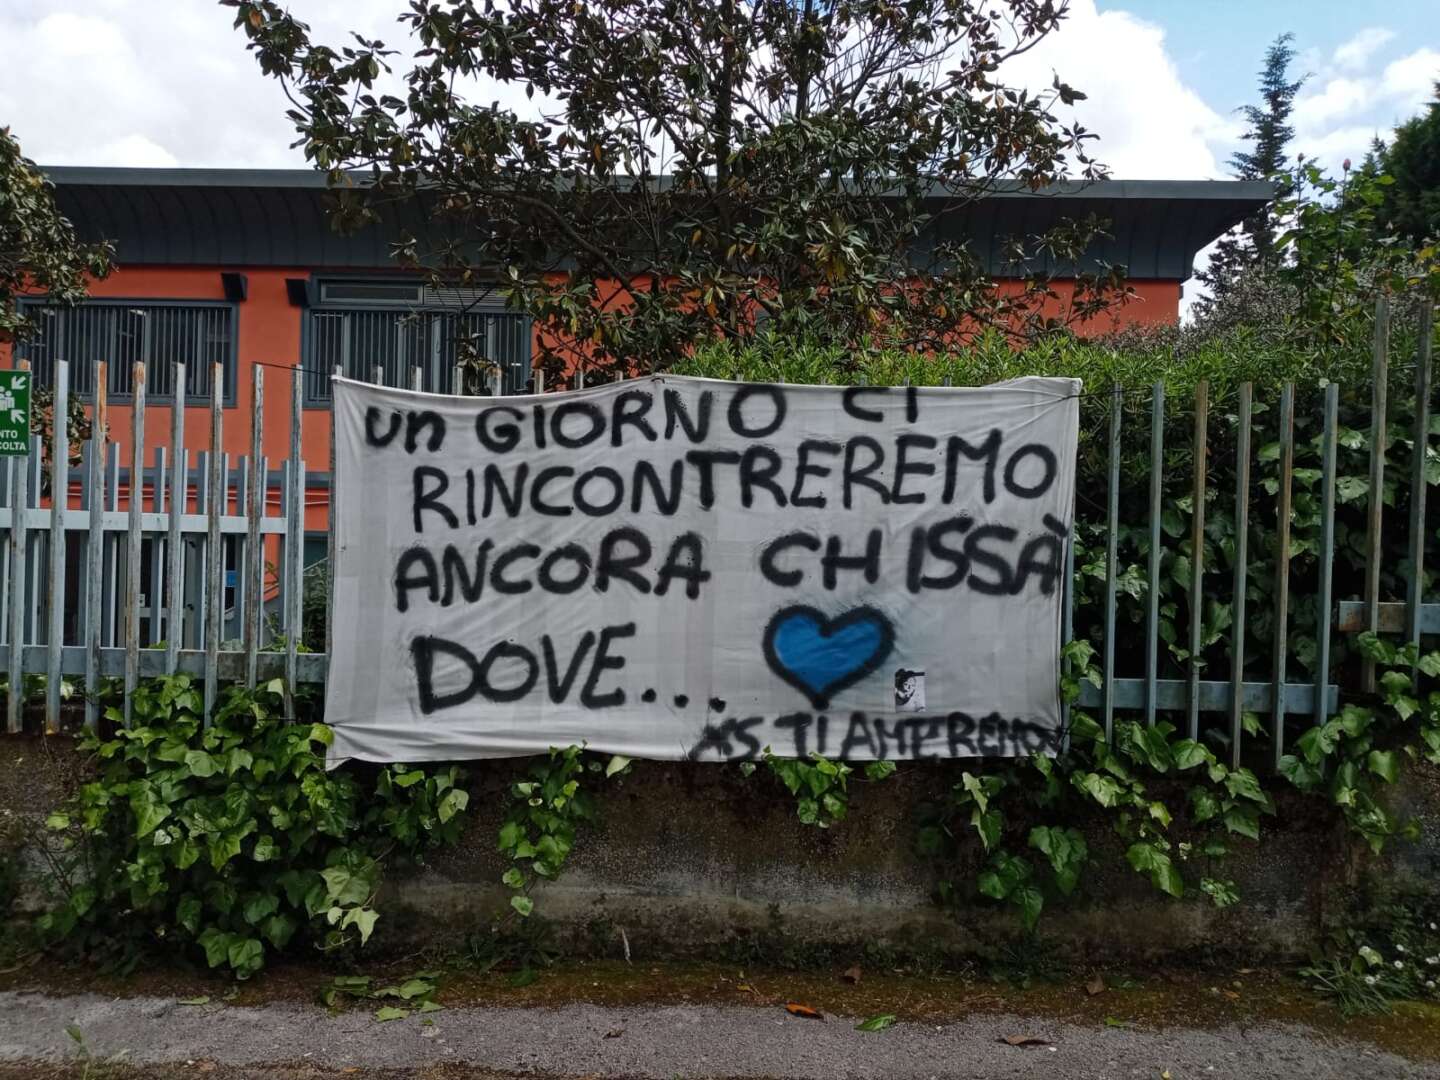 NTO
COLTA
un GIORNO CI
RINCONTREREMO
ANCORA CHISSÀ
DOVE...
TI AMEREMO